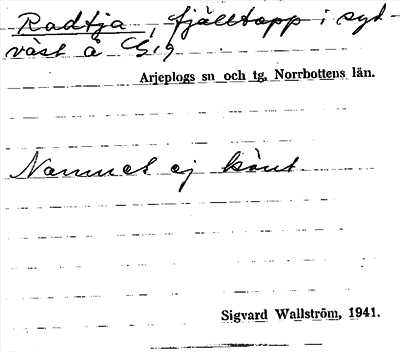 Radtja, fjälltopp i syd-
väst å
Arjeplogs sn och tg, Norrbottens län.
Namnet ej känt
Sigvard Wallström, 1941.